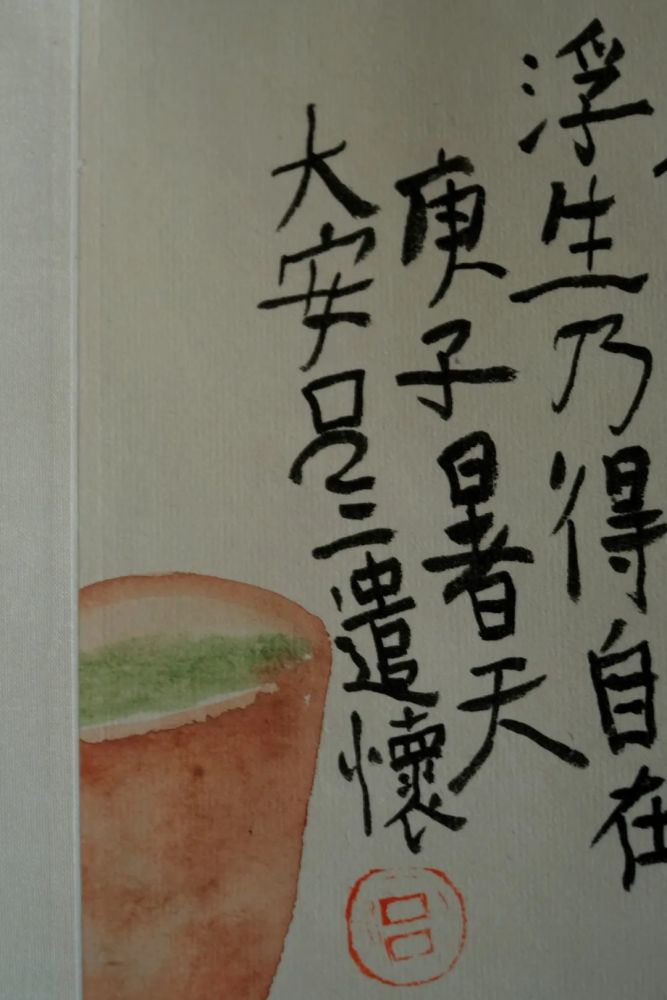 浮生乃得自在
庚子暑天
大安吕三遣懷
吕